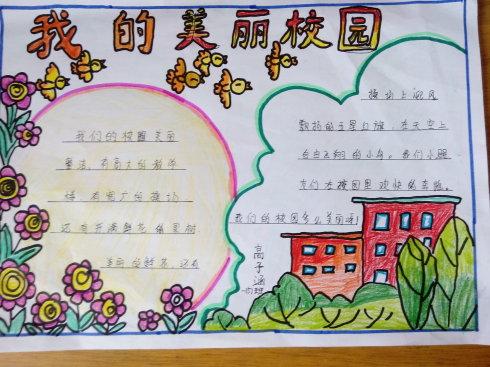 我的美丽校园
我们的校园美丽
整洁，有高大的教学
楼，有宽广的操场，
还有开满鲜花的果树
美丽的鲜花，还有
操场上迎风
飘扬的五星红旗，在天空上
自由飞翔的小鸟。我们小朋
友们在校园里欢快的
我们的校园多么美丽呀！
高子涵